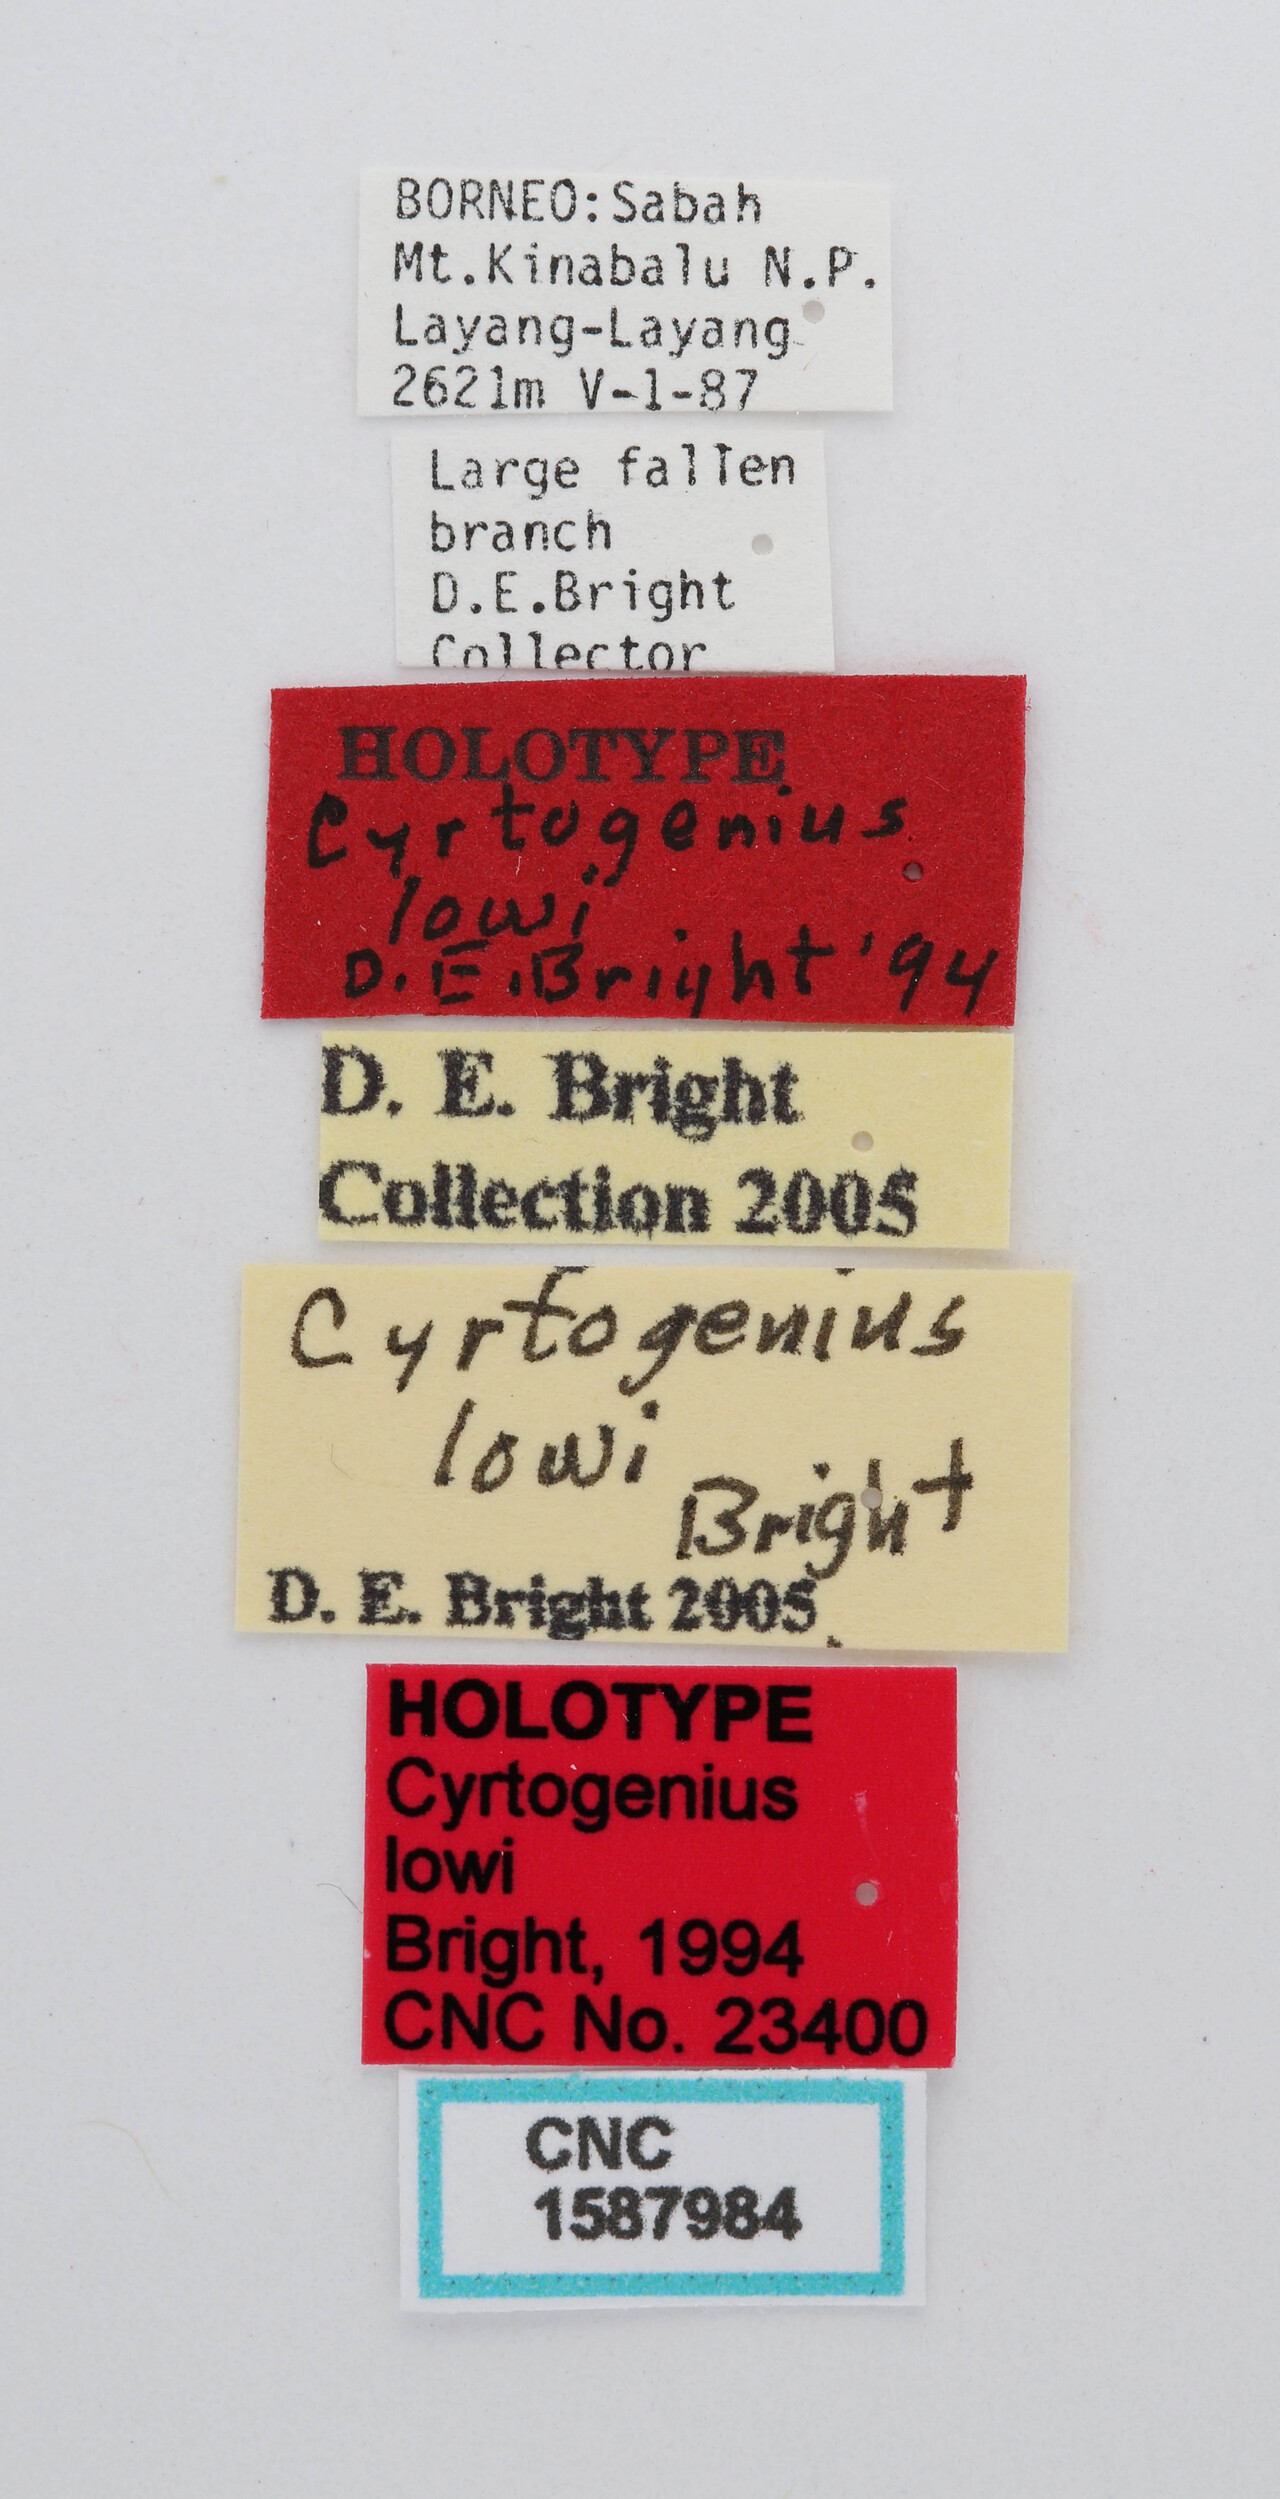 BORNEO:Sabah
Mt.Kinabalu N.P.
Layang-Layang
2621m V-1-87
Large fallen
branch
D.E.Bright
Collector
HOLOTYPE
Cyrtogenius
lowi
D.E.Bright '94
D. E. Bright
Collection 2005
Cyrtogenius
lowi
Bright
D. E. Bright 2005
HOLOTYPE
Cyrtogenius
lowi
Bright, 1994
CNC No. 23400
CNC
1587984